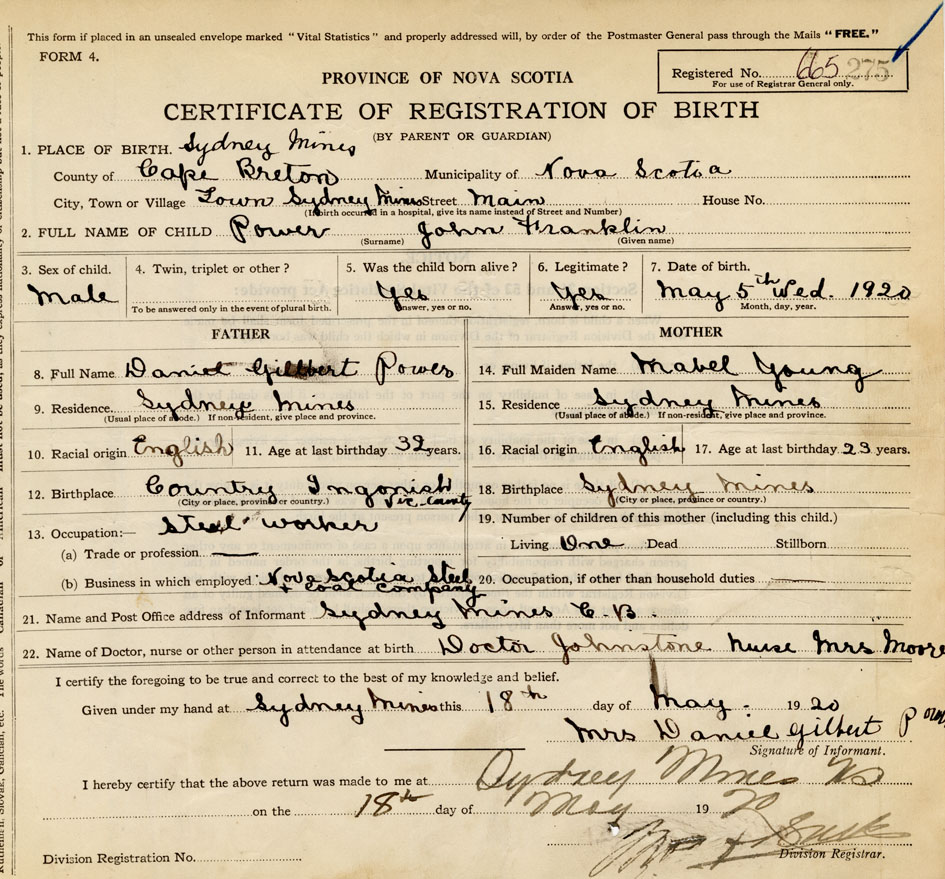 This form if placed in an unsealed envelope marked "Vital Statistics" and properly addressed will, by order of the Postmaster General pass through the Mails "FREE."
FORM 4.
Registered No. 665 275
For use of Registrar General only.
PROVINCE OF NOVA SCOTIA
CERTIFICATE OF REGISTRATION OF BIRTH
(BY PARENT OR GUARDIAN)
1. PLACE OF BIRTH. Sydney Mines
County of Cape Breton Municipality of Nova Scotia
City, Town or Village Town Sydney Mines Street Main House No.
(If birth occurred in a hospital, give its name instead of Street and Number)
2. FULL NAME OF CHILD Power John Franklin
(Surname) (Given name)
3. Sex of child. 4. Twin, triplet or other? 5. Was the child born alive? 6. Legitimate? 7. Date of birth.
Male Yes Yes May 5th Wed. 1920
To be answered only in the event of plural birth. Answer, yes or no. Answer, yes or no. Month, day, year.
FATHER MOTHER
8. Full Name Daniel Gilbert Power 14. Full Maiden Name Mabel Young
9. Residence. Sydney Mines 15. Residence Sydney Mines
(Usual place of abode.) If non-resident, give place and province. (Usual place of abode.) If non-resident, give place and province.
10. Racial origin English 11. Age at last birthday 32 years. 16. Racial origin English 17. Age at last birthday 23 years.
12. Birthplace Country Ingonish Vic. County 18. Birthplace Sydney Mines
(City or place, province or country.) (City or place, province or country.)
13. Occupation:— Steel worker 19. Number of children of this mother (including this child.)
(a) Trade or profession Living One Dead Stillborn
(b) Business in which employed Nova Scotia Steel + Coal Company 20. Occupation, if other than household duties
21. Name and Post Office address of Informant Sydney Mines C-B.
22. Name of Doctor, nurse or other person in attendance at birth Doctor Johnstone nurse Mrs Moore
I certify the foregoing to be true and correct to the best of my knowledge and belief.
Given under my hand at Sydney Mines this 18th day of May 1920
Mrs Daniel Gilbert Power
Signature of Informant.
I hereby certify that the above return was made to me at Sydney Mines NS
on the 18th day of May 1920
Division Registration No. Division Registrar.